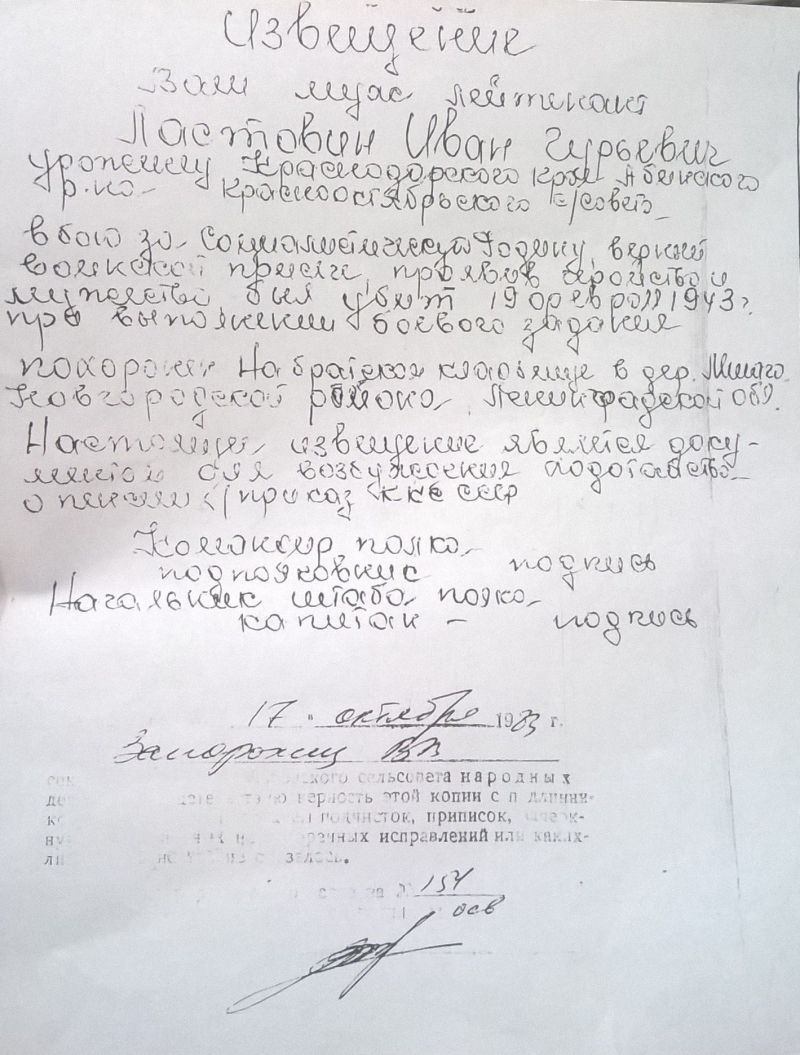 Извещение
Ваш муж лейтенант
Ластовин Иван Гурьевич
уроженец Краснодарского края Абинского
р-на Краснооктябрьского с/совета
в бою за Социалистическую Родину, верный
воинской присяге, проявив геройство и
мужество был убит 19 февраля 1943 г.
при выполнении боевого задания
похоронен На братском кладбище в дер.
Новгородского района Ленинградской обл.
Настоящее извещение является доку-
ментом для возбуждения ходатайства
о пенсии (приказ НКО СССР
Командир полка
подполковник подпись
Начальник штаба полка
капитан - подпись
17 " октября 1983 г.
Запорожец ВВ
сельсовета народных
верность этой копии с подлинни-
подчисток, приписок,
исправлений или каких-
154
осв